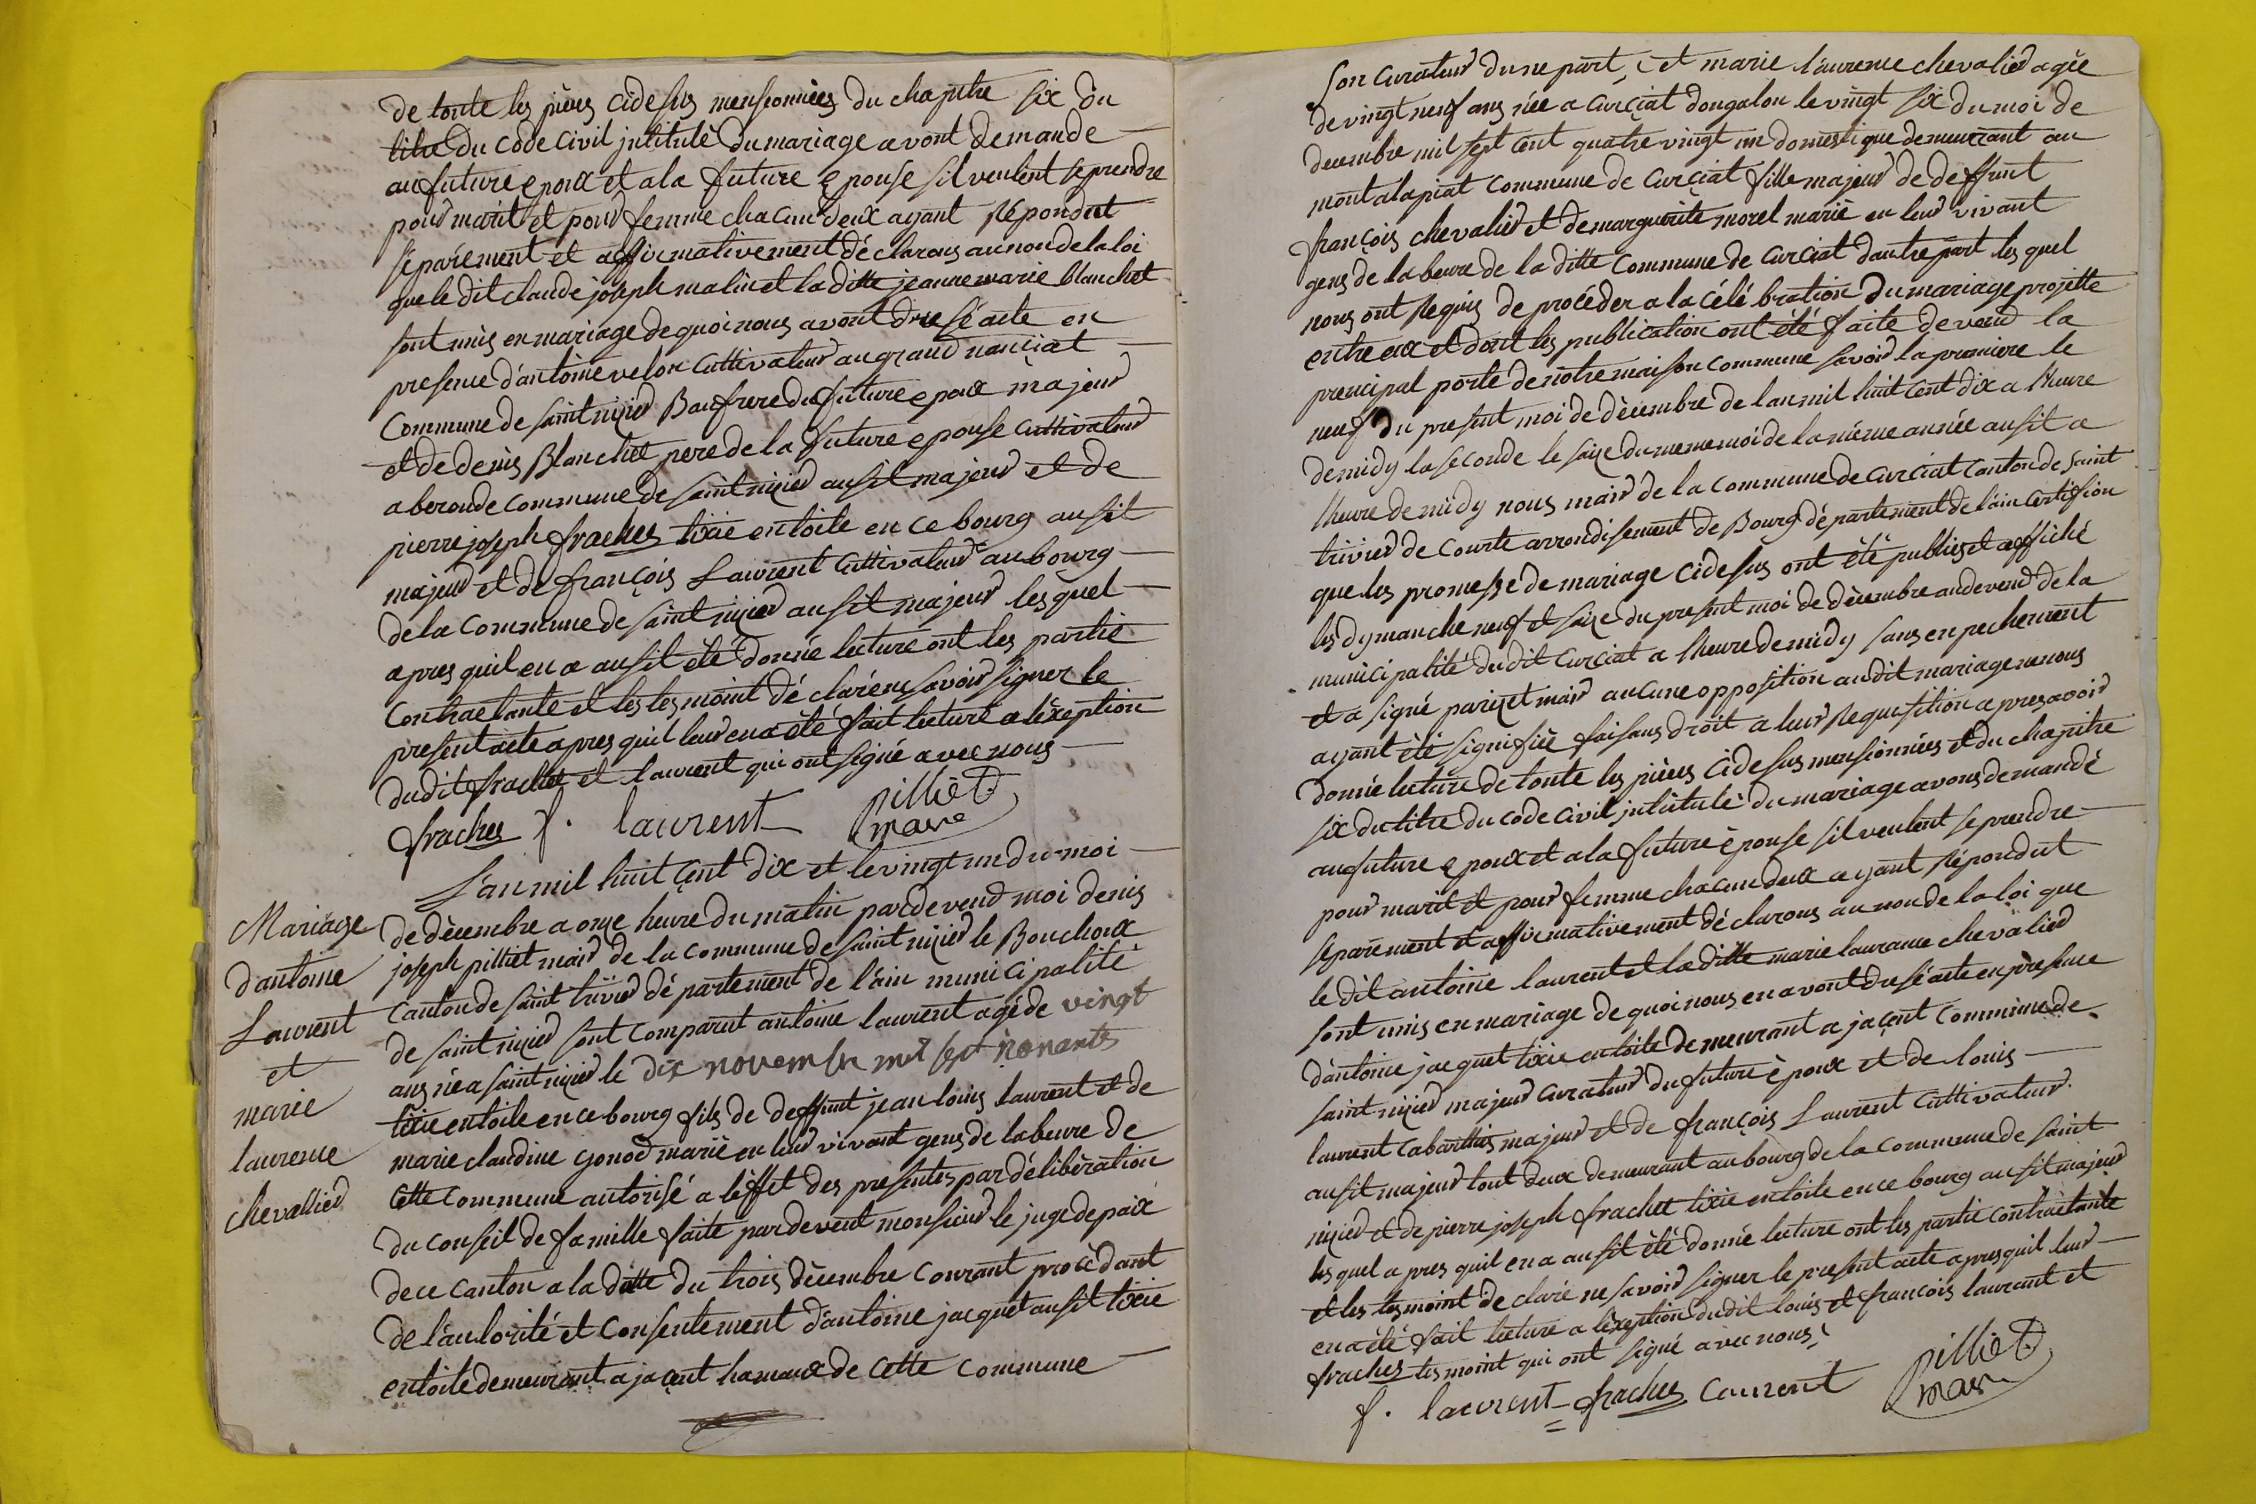 de toute les pièces cidesus mensionnées du chapitre six du
titre du code civil jntitulé du mariage avont demande
au future epoux et a la future epouse sil veulent se prendre
pour marit et pour femme chacun deux ayant répondut
séparément et affirmativement déclarons au non de la loi
que le dit claude joseph malin et la ditte jeanne marie blanchet
sont unis en mariage de quoi nous avont dresé acte en
presence d'antoine velon cuttivateur au grand nanciat
Commune de saint nizier Baufrere du future epoux majeur
et de denis Blanchet pere de la future epouse cuttivateur
a beronde commune de saint nizier ausit majeur et de
pierre joseph frachet tixie en toile en ce bourg ausit
majeur et de françois Laurent Cuttivateur au bourg
de la Commune de saint nizier ausit majeur lesquel
apres quil en a ausit été donné lecture ont les partie
Contractante et les tesmoint déclaré ne savoir signer le
present acte apres quil leur en a été fait lecture a léxeption
dudit frachet et laurent qui ont signé avec nous
frachet f. laurent pilliet
maire
Mariage
d'antoine
Laurent
et
marie
laurence
chevallier
L'an mil huit cent dix et le vingt un du moi
de décembre a onze heure du matin pardevend moi denis
joseph pilliet mair de la commune de saint nizier le Bouchoux
Canton de saint trivier département de l'ain municipalité
de saint nizier sont comparut antoine laurent agé de vingt
ans née a saint nizier le dix novembre mil sept nonante
tixie en toile en ce bourg fils de deffunt jean louis laurent et de
marie claudine gonod marié en leur vivant gens de labeure de
Cette commune autorisé a léffet des presentes par délibération
du conseil de famille faite pardevent monsieur le juge de paix
de ce canton a la datte du trois décembre courant procédant
de l'autorité et consentement d'antoine jacquet ausit tixie
en toile demeurant a jacent hamaux de cette commune
son curateur dune part, et marie laurence chevalier agée
de vingt neuf ans née a curciat dongalon le vingt six du moi de
decembre mil sept cent quatre vingt un domestique demeurrant au
mont alapiat commune de curciat fille majeur de deffunt
françois chevalier et de marguerite morel marié en leur vivant
gens de labeure de la ditte commune de curciat dautre part lesquel
nous ont requis de procéder a la célébration du mariage projette
entre eux et dont les publication ont été faite devend la
principal porte de notre maison commune savoir la premiere le
neuf du present moi de décembre de lan mil huit cent dix a lheure
de midy la seconde le saize du meme moi de la même année ausit a
lheure de midy nous mair de la commune de curciat canton de saint
trivier de courte arrondisement de Bourg département de lain certifion
que les promesse de mariage cidesus ont été publiés et affiché
les dymanche neuf et saize du present moi de décembre audevend de la
municipalité dudit curciat a lheure de midy sans enpechement
et a signé parizet mair aucune opposition audit mariage ne nous
ayant été signifiée faisans droit a leur requisition apres avoir
donné lecture de toute les pièces cidesus mensionnées et du chapitre
six du titre du code civil jntitulé du mariage avons demandé
au future epoux et a la future épouse sil veulent se prendre
pour marit et pour femme chacun deux ayant répondut
séparément et affirmativement déclarons au non de la loi que
le dit antoine laurent et la ditte marie laurance chevalier
sont unis en mariage de quoi nous en avont dresé acte en présence
d'antoine jacquet tixie en toile demeurant a jacent commune de
saint nizier majeur curateur du future époux et de louis
laurent cabarttier majeur et de françois Laurent cuttivateur
ausit majeur tout deux demeurant au bourg de la commune de saint
nizier et de pierre joseph frachet tixie en toile en ce bourg ausit majeur
lesquel apres quil en a ausit été donné lecture ont les partie contractante
et les tesmoint declaré ne savoir signer le present acte apres quil leur
en a été fait lecture a léxeption dudit louis et françois laurant et
frachet tesmoint qui ont signé avec nous,
f. laurent frachet Laurent pilliet
mair